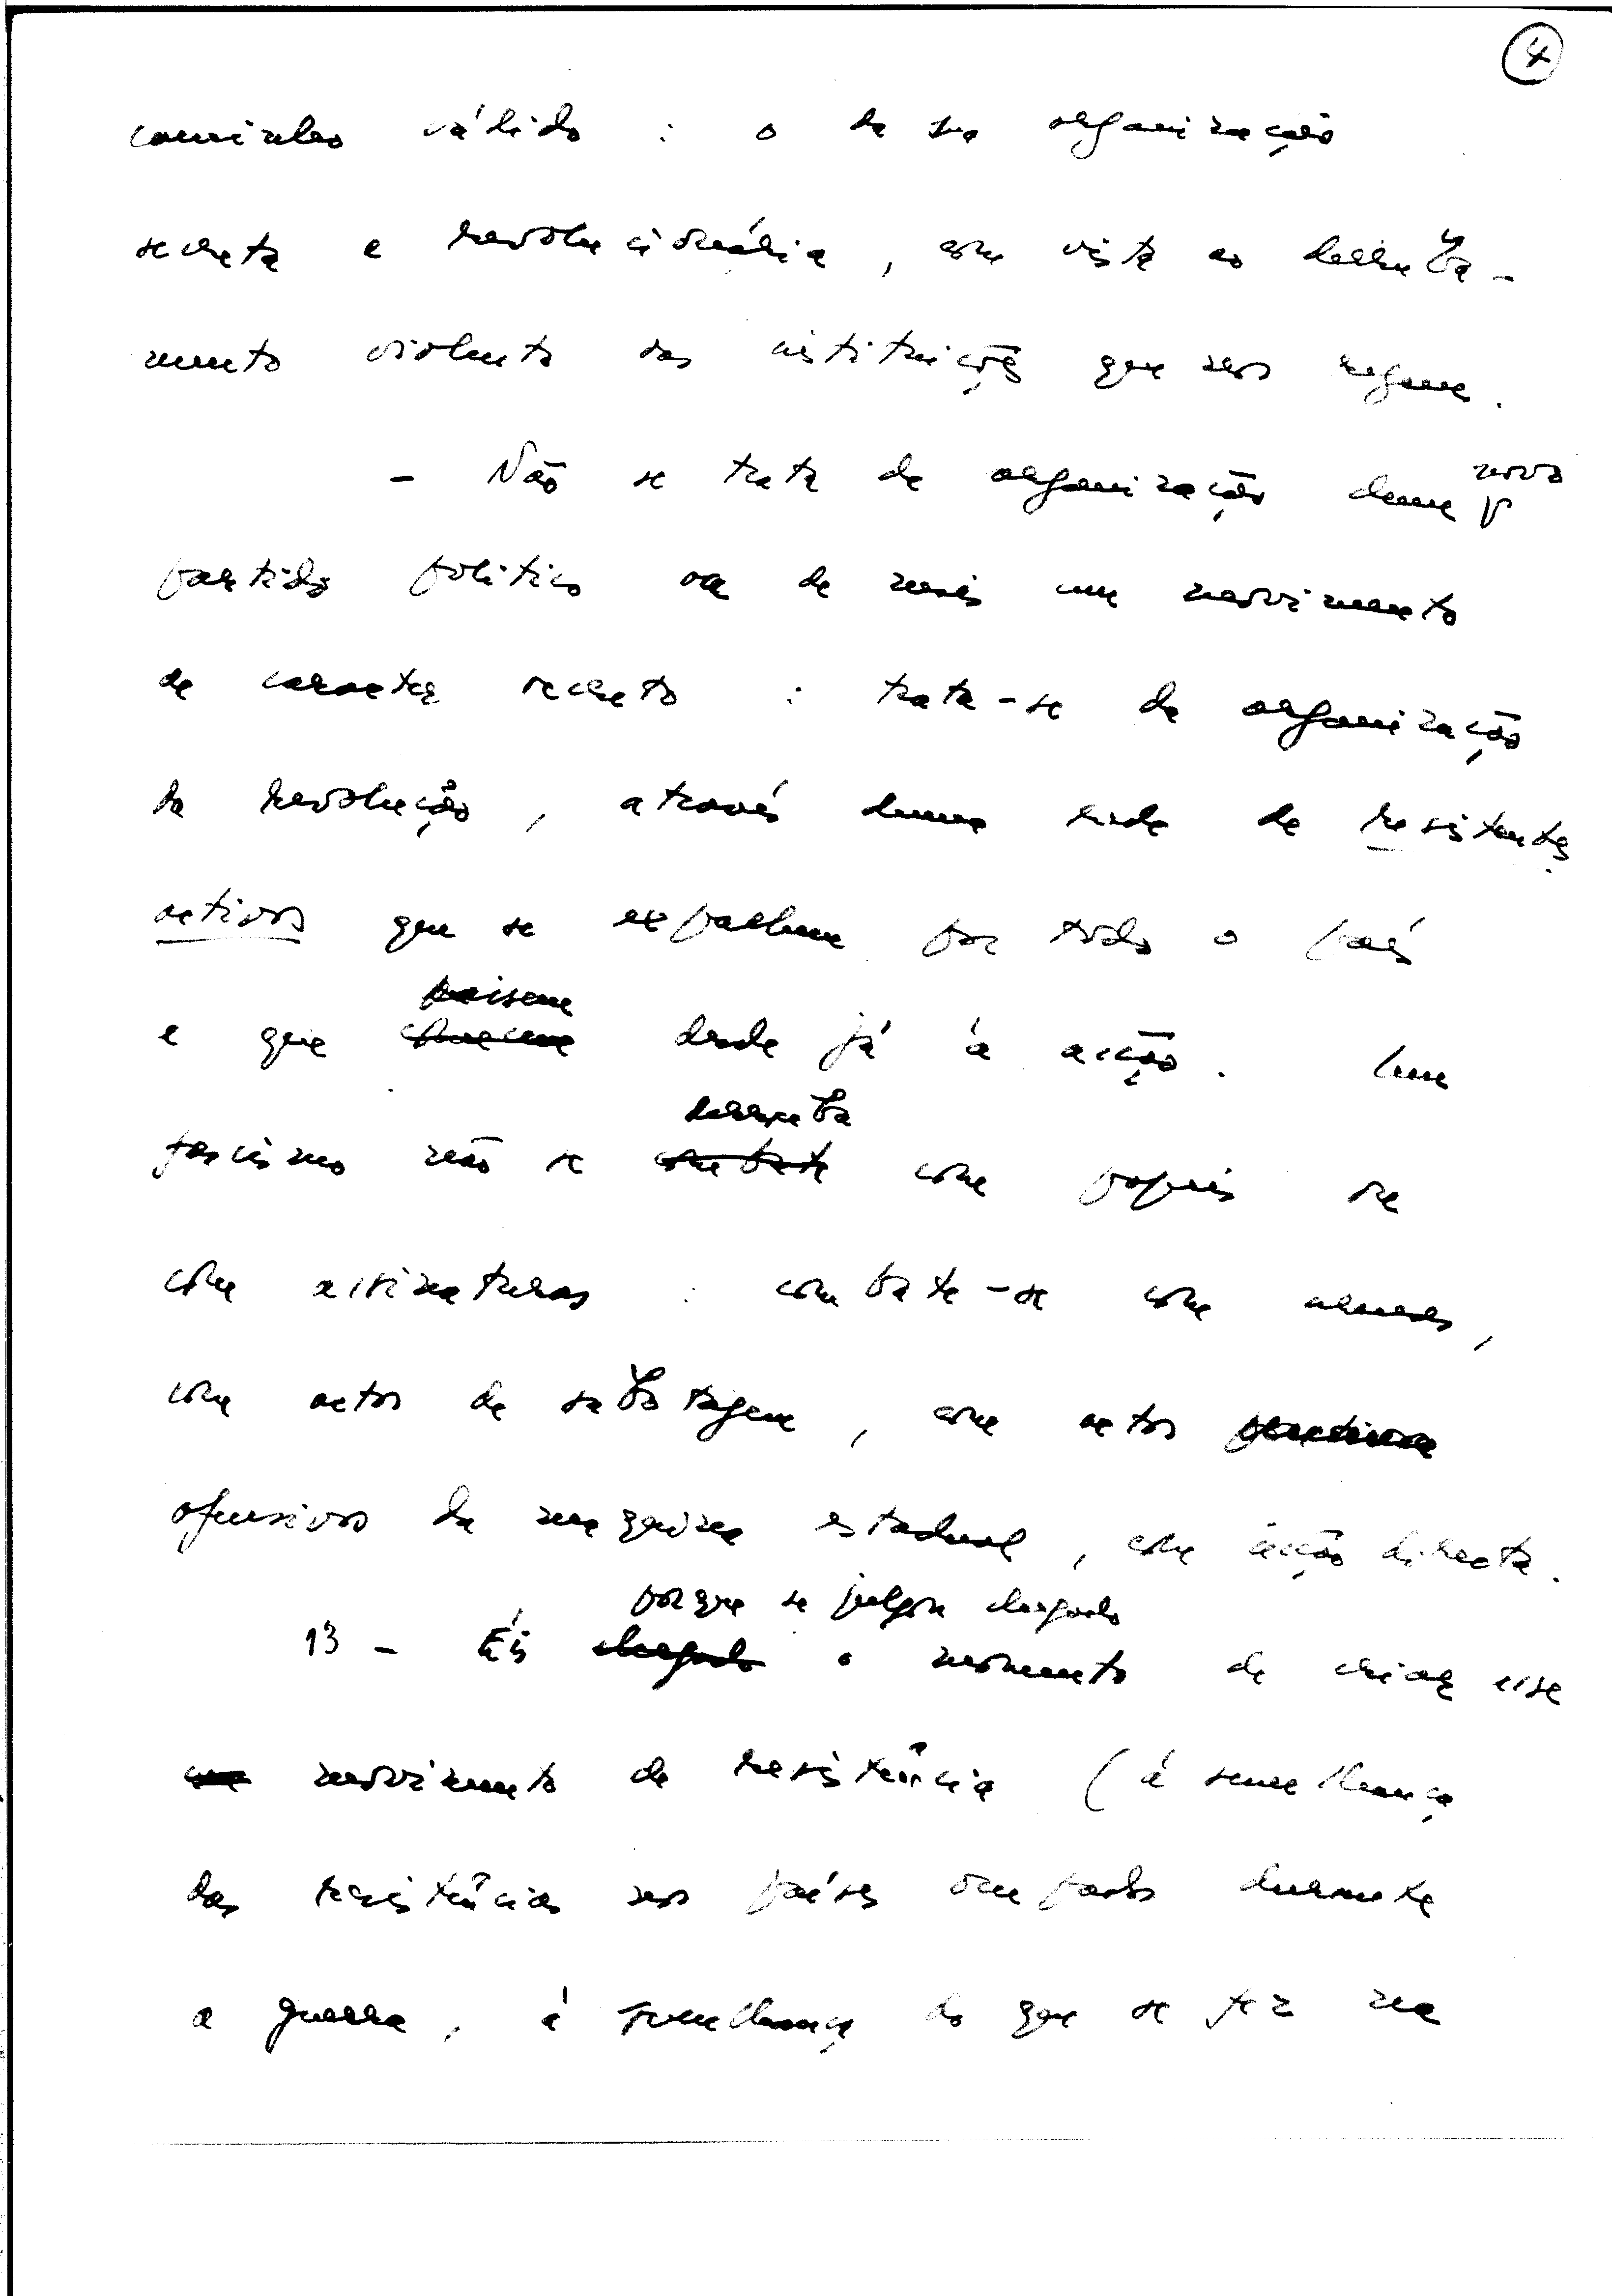 4
caminho válido : o da sua organização
secreta e revolucionária, com vista ao derruba-
mento violento das instituições que nos regem.
- Não se trata de organização dum novo
partido politico ou de mais um movimento
de caracter secreto : trata-se da organização
da revolução, através duma rede de resistentes
activos que se espalhem por todo o país
passem
e que comecem desde já à acção. Um
derruba
fascismo não se combate com papeis ou
com assinaturas : combate-se com armas,
com actos de sabotagem, com actos
ofensivos da maquina estadual, com acção directa.
porque se julgou chegado
13 - Eis chegado o momento de criar esse
um movimento de resistência (à semelhança
das resistências nos países ocupados durante
a guerra, à semelhança do que se fez na